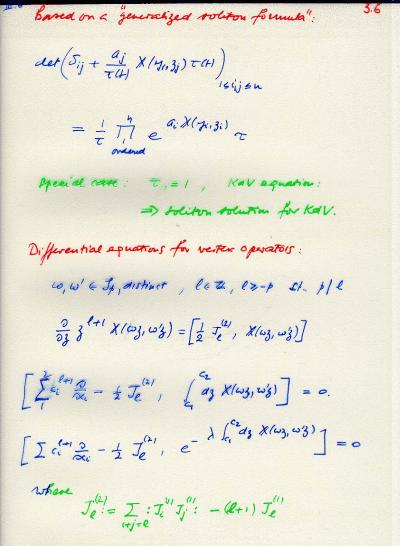 3.6
Based on a "generalized soliton formula":
det(δ_ij + a_j/τ(t) X(y_i, z_j) τ(t))_{1≤i,j≤n}
= 1/τ ∏_{1}^{n} e^{a_i X(y_i, z_i)} τ
ordered
Special case: τ = 1, KdV equation:
⇒ soliton solution for KdV.
Differential equations for vertex operators:
ω, ω' ∈ ζ_p, distinct, l ∈ ℤ, l ≥ -p st. p/l
∂/∂z z^{l+1} X(ωz, ω'z) = [1/2 J_l^{(2)}, X(ωz, ω'z)]
[∑_{1}^{2} c_i^{l+1} ∂/∂c_i - 1/2 J_l^{(2)}, ∫_{c_1}^{c_2} dz X(ωz, ω'z)] = 0.
[∑ c_i^{l+1} ∂/∂c_i - 1/2 J_l^{(2)}, e^{-λ ∫_{c_1}^{c_2} dz X(ωz, ω'z)}] = 0
where
J_l^{(2)} = ∑_{i+j=l} : J_i^{(1)} J_j^{(1)} : - (l+1) J_l^{(1)}